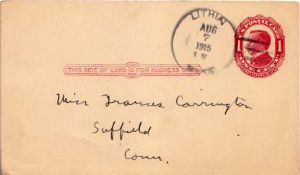 LITHIA
AUG
7
1915
MASS.
U.S. POSTAL CARD
1 1
THIS SIDE OF CARD IS FOR ADDRESS ONLY
Miss Frances Carrington
Suffield
Conn.